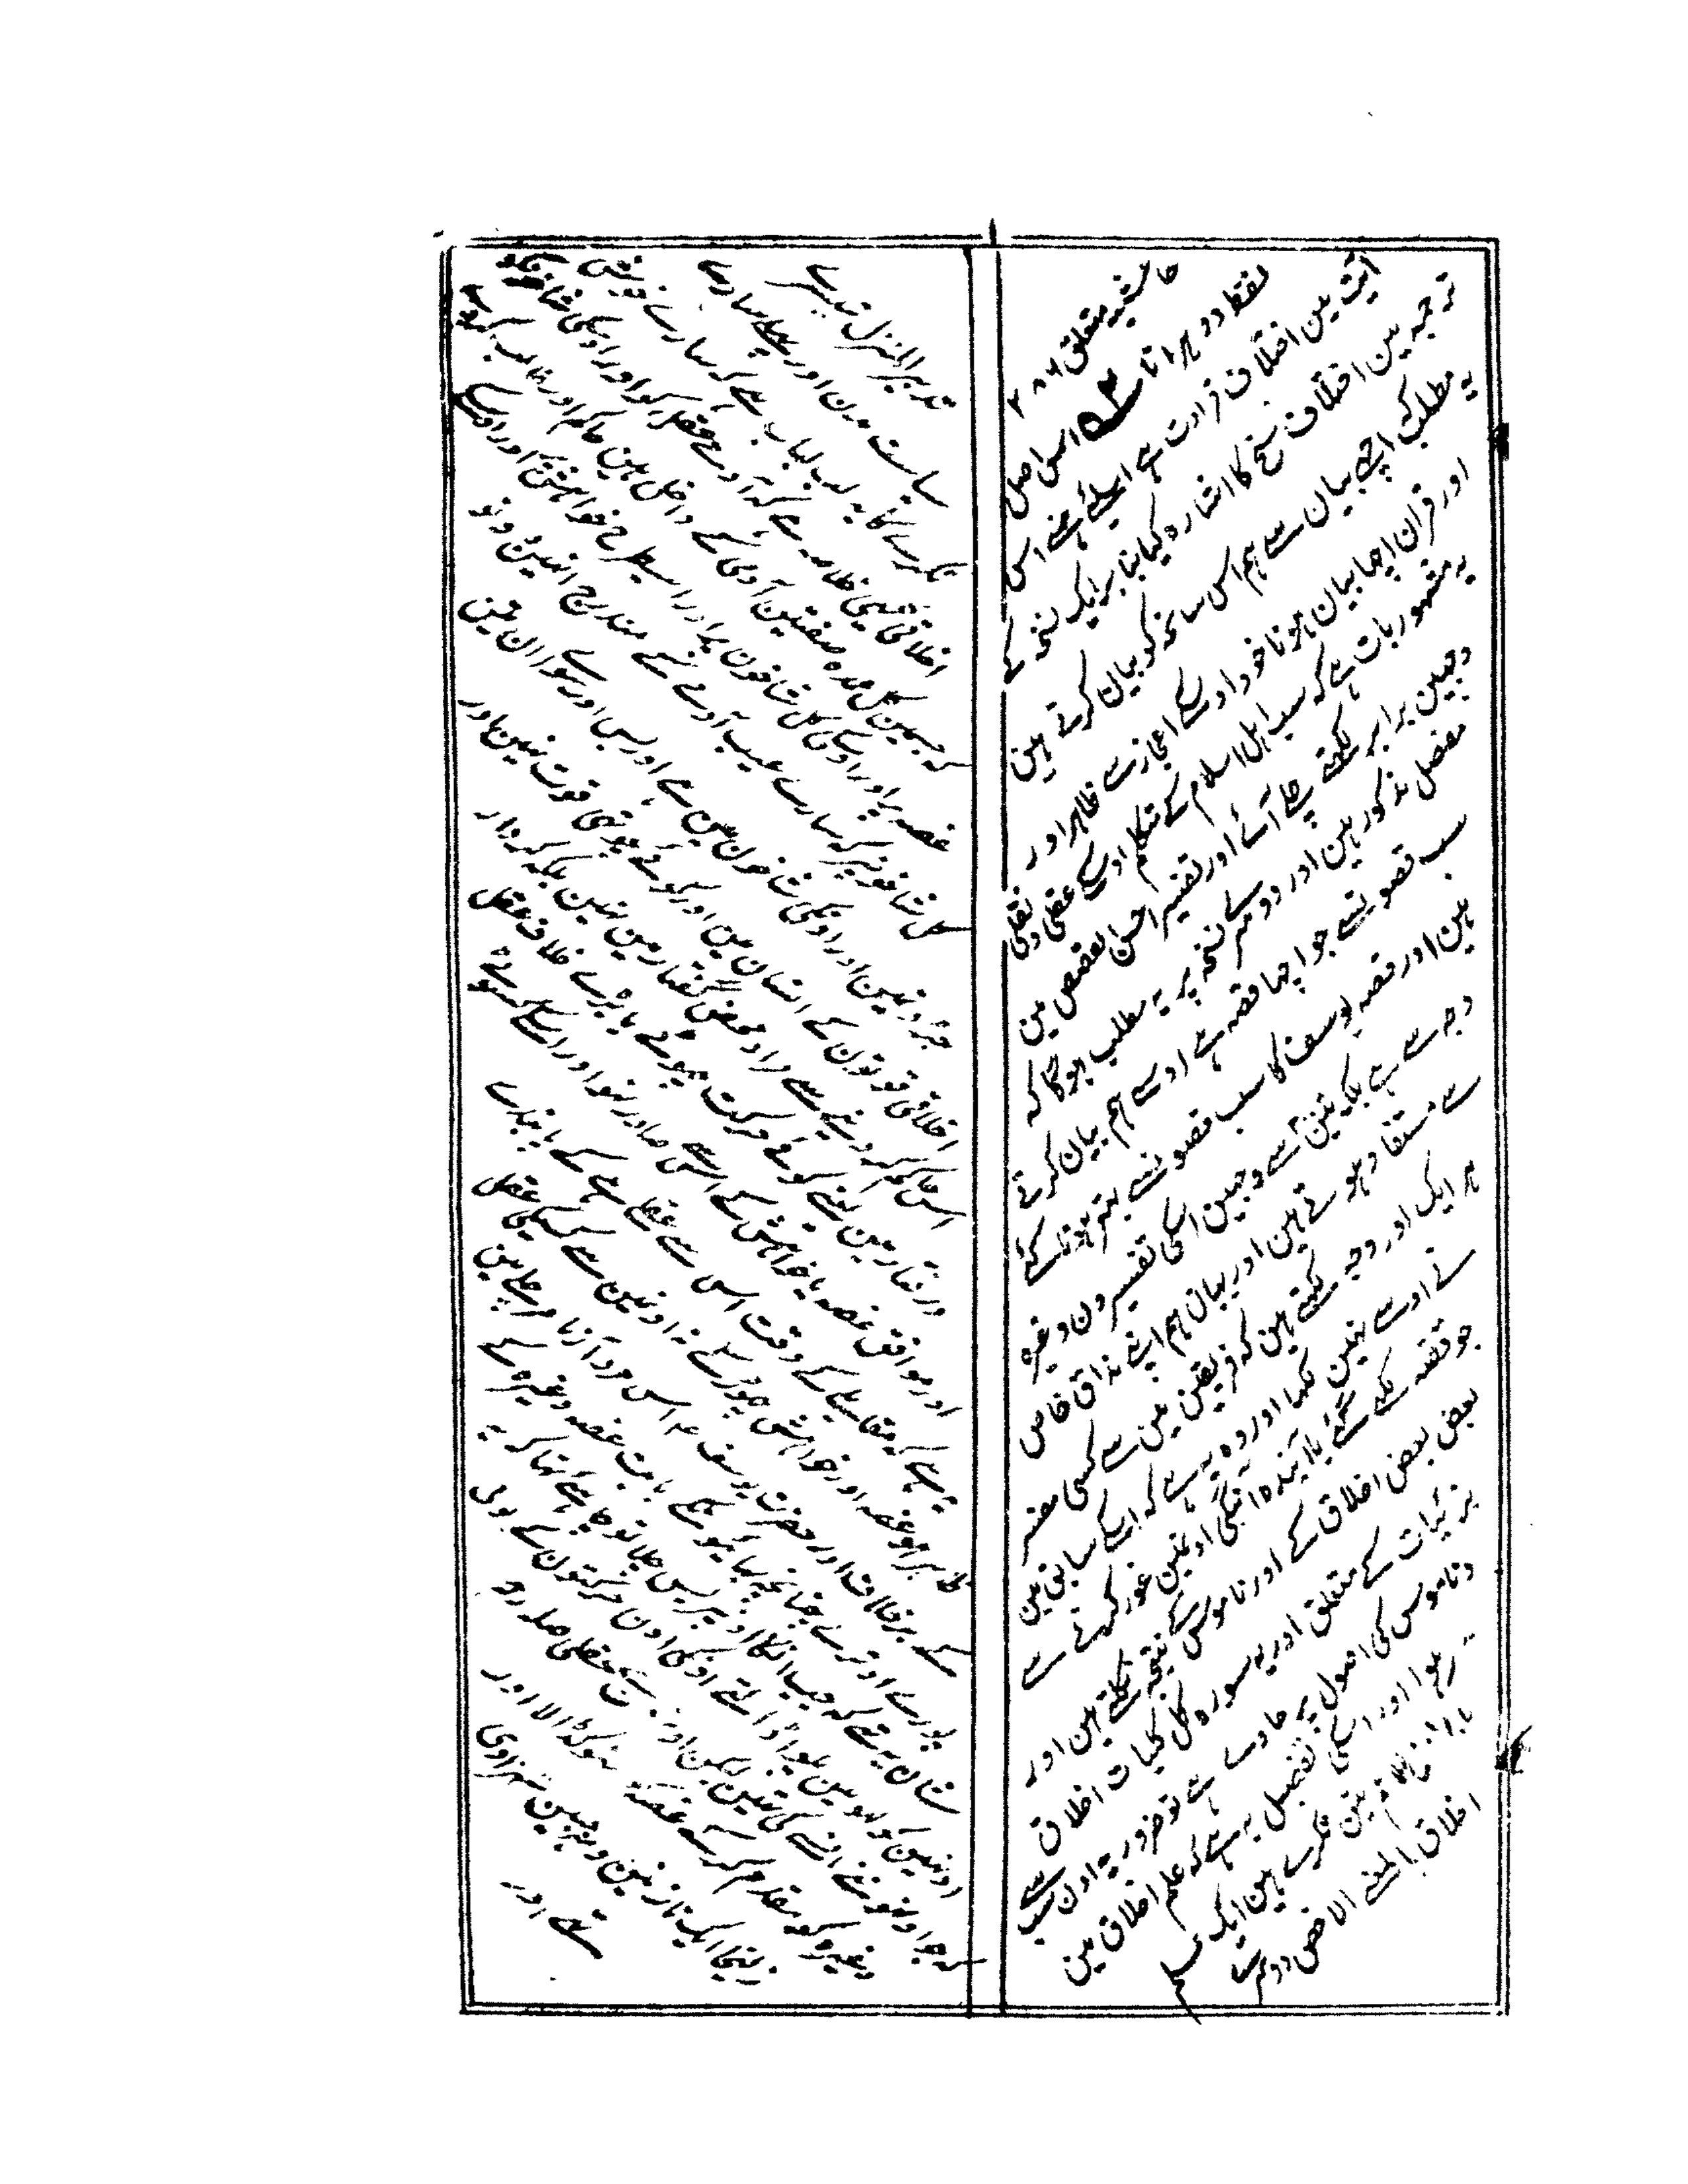 حاشیہ متعلق ۲۸۶
لفظ دوہرانا ۵۳ اس اصل
آیت مین اختلاف قرادت ہے اسلئے ہمنے اس
ترجمہ مین اختلاف نسخ کا اشارہ کیا بنا بر ایک نسخہ کے
یہ مطلب کہ اچھے بیان سے ہم اس سانحہ کو بیان کرتے ہین
اور قران اچھا بیان ہونا خود اوسکے اعجاز سے ظاہر اور
یہ مشہور بات ہے کہ سب اہل اسلام کے متکلم اوسکے عقلی و نقلی
وجہین برابر لکھتے چلے آئے اور تفسیر احسن القصص مین
مفصل مذکور ہین اور دوسرے نسخہ پر یہ مطلب ہوگا کہ
سب قصونسے جو اچھا قصہ ہے اوسے ہم بیان کرتے
ہین اور قصہ یوسف کا سب قصونسے بہتر ہونا کئے
وجہ سے ہے بلکہ تین سے وجہین اسکی تفسیرون وغیرہ
سے مستفاد ہوتے ہین اور یہان ہم اپنے مذاق خاص
پر ایک اور وجہ لکھتے ہین کہ فریقین مین سے کسی مفسر
نے اوسے نہین لکھا اور وہ یہ ہے کہ اسکے سابق مین
جو قصے لکھے گئے یا آیندہ آئینگے اونمین غور کرنے سے
بعض بعض اخلاق کے اور ناموس کے نتیجے نکلتے ہین اور
جزئیات کے متعلق اور یہ سورہ کل کلیات اخلاق
وناموس کی اصول پر حاوی ہے تو ضرور یہ اون سب سے
ہوا اور اسکی تفصیل یہ ہے کہ علم اخلاق مین
ہین ایک
اخلاق بالمعنے الاخص دوسرے
تدبیر المنزل تیسرے
سیاست مدن اور پہلے سارے
کا یہ لب لباب ہے کہ سارے
اخلاق کا یہی خلاصہ ہے کہ آدمی عقل کو اور اوسکی شاخونکو
کہ جسمین کل عمدہ صفتین آدمی کے داخل ہین حاکم اور غالب کرے
غصہ پر اور اوسکی کل شاخون پر اور اسیطرح خواہش پر اور اوسکے
کل شاخونپر کہ سارے عیب آدمی کے مندرج انہین دونو
جڑونمین اور اونکی شاخون مین ہے اور بس اور سوا ان تین
اخلاقی قوتون کے انسان مین اور کوئے چوتھی قوت نہین اور
اس حاکم کر دینے سے مراد محض گفتار مین نہین بلکہ کردار
ورفتار مین یعنے کوئے حرکت چھوٹے یا بڑے خلاف عقل
اور موافق غصہ یا خواہش کے اس سے صادر نہو اور اسے کسوٹی
یہ ہے کہ مقابلے کے وقت اس سے عقل ہے کے پابندے
ظاہر ہو غصہ اور خواہش چھوڑ کے نہ اونمین سے کسیکی عقل
کے برخلاف اور حضرت یوسف ع اس مرد آزما مرحلے مین
پورے اوترے چنانچہ بھائیونکے بابت غصہ وغیرہ کے
شان یہ تھے کہ جب انکا اونپر بس چلا تو چاہئے تھا کہ یہ
اونمین کو لہو مین پلوا ڈالتے اونکی اون حرکتون کے بدلی
جو اونہونے انسے کی تہین لیکن اونہونے عقلی صلہ رو
وغیرہ کو مقدم کرکے غصہ کو نہوکر ڈالا اور
زلیخا ایک نازنین و مہ جبین شہزادی
تھے اور